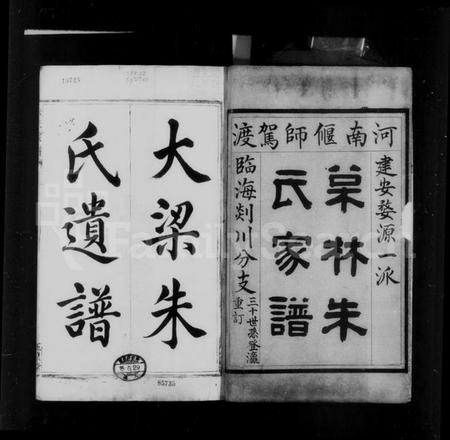 河南偃師駕渡
建安婺源一派
杲林朱
氏家譜
臨海剡川分支
三十世孫登瀛
重訂
大梁朱
氏遺譜
85735